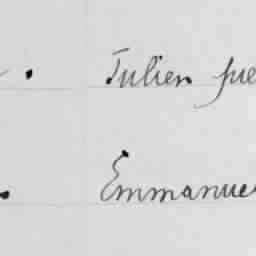 Julien
Emmanue